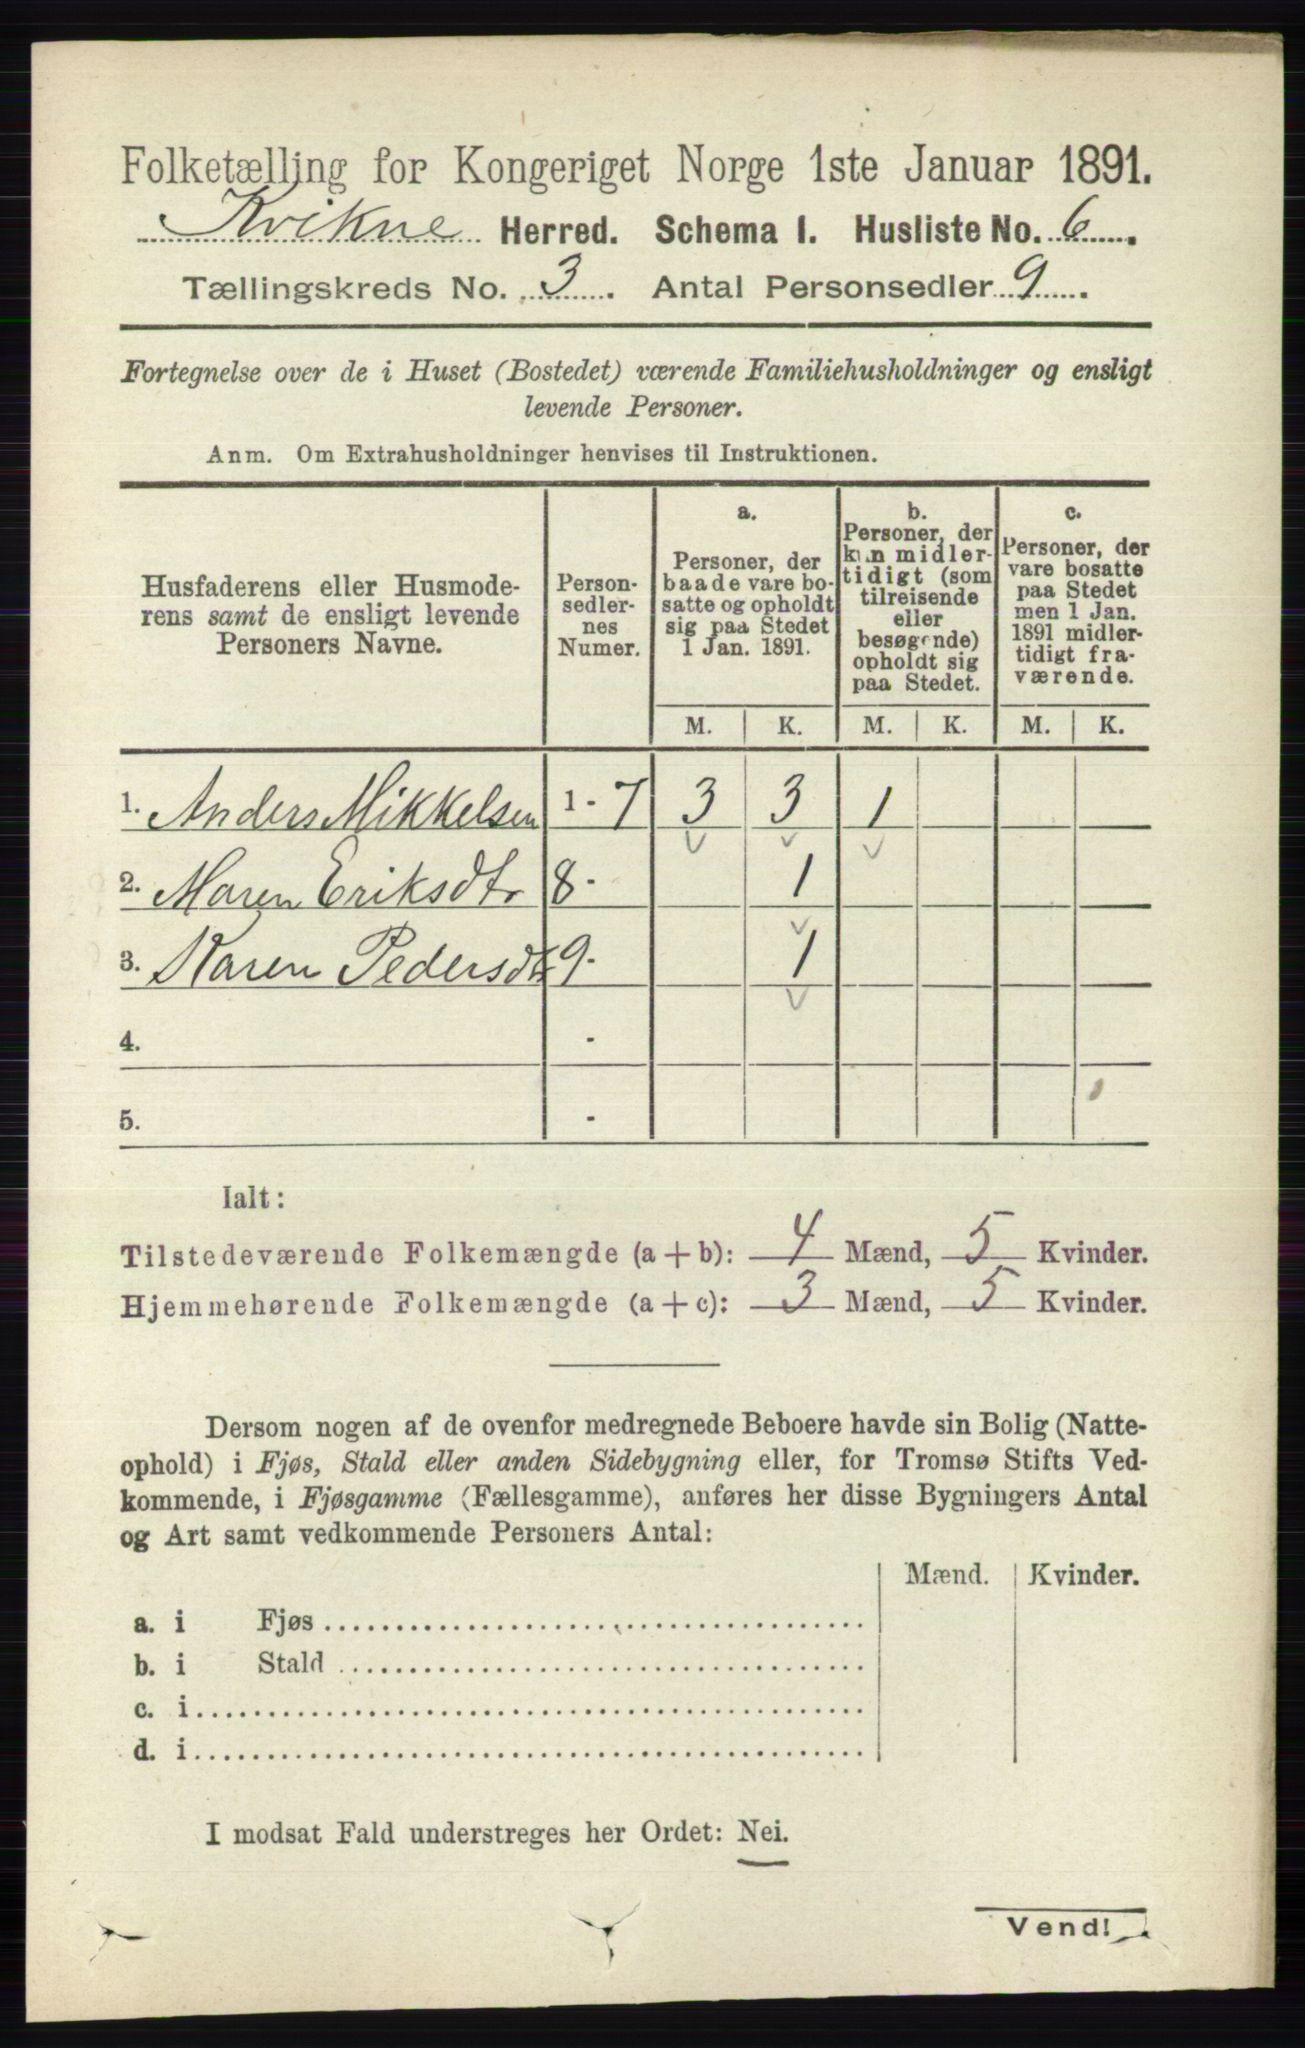 Folketælling for Kongeriget Norge 1ste Januar 1891.
Kvikne Herred. Schema I. Husliste No. 6.
Tællingskreds No. 3. Antal Personsedler 9.
Fortegnelse over de i Huset (Bostedet) værende Familiehusholdninger og ensligt
levende Personer.
Anm. Om Extrahusholdninger henvises til Instruktionen.
Husfaderens eller Husmoderens samt de ensligt levende Personers Navne.
Personsedlernes Numer.
a.
Personer, der baade vare bosatte og opholdt sig paa Stedet 1 Jan. 1891.
b.
Personer, der kun midlertidigt (som tilreisende eller besøgende) opholdt sig paa Stedet.
c.
Personer, der vare bosatte paa Stedet men 1 Jan. 1891 midlertidigt fraværende.
M. K. M. K. M. K.
1. Anders Mikkelsen 1 - 7 3 3 1
2. Maren Eriksdtr 8 - 1
3. Karen Pedersdtr 9 - 1
4. -
5. -
Ialt:
Tilstedeværende Folkemængde (a + b): 4 Mænd, 5 Kvinder.
Hjemmehørende Folkemængde (a + c): 3 Mænd, 5 Kvinder.
Dersom nogen af de ovenfor medregnede Beboere havde sin Bolig (Natte-
ophold) i Fjøs, Stald eller anden Sidebygning eller, for Tromsø Stifts Ved-
kommende, i Fjøsgamme (Fællesgamme), anføres her disse Bygningers Antal
og Art samt vedkommende Personers Antal:
Mænd. Kvinder.
a. i Fjøs
b. i Stald
c. i
d. i
I modsat Fald understreges her Ordet: Nei.
Vend!